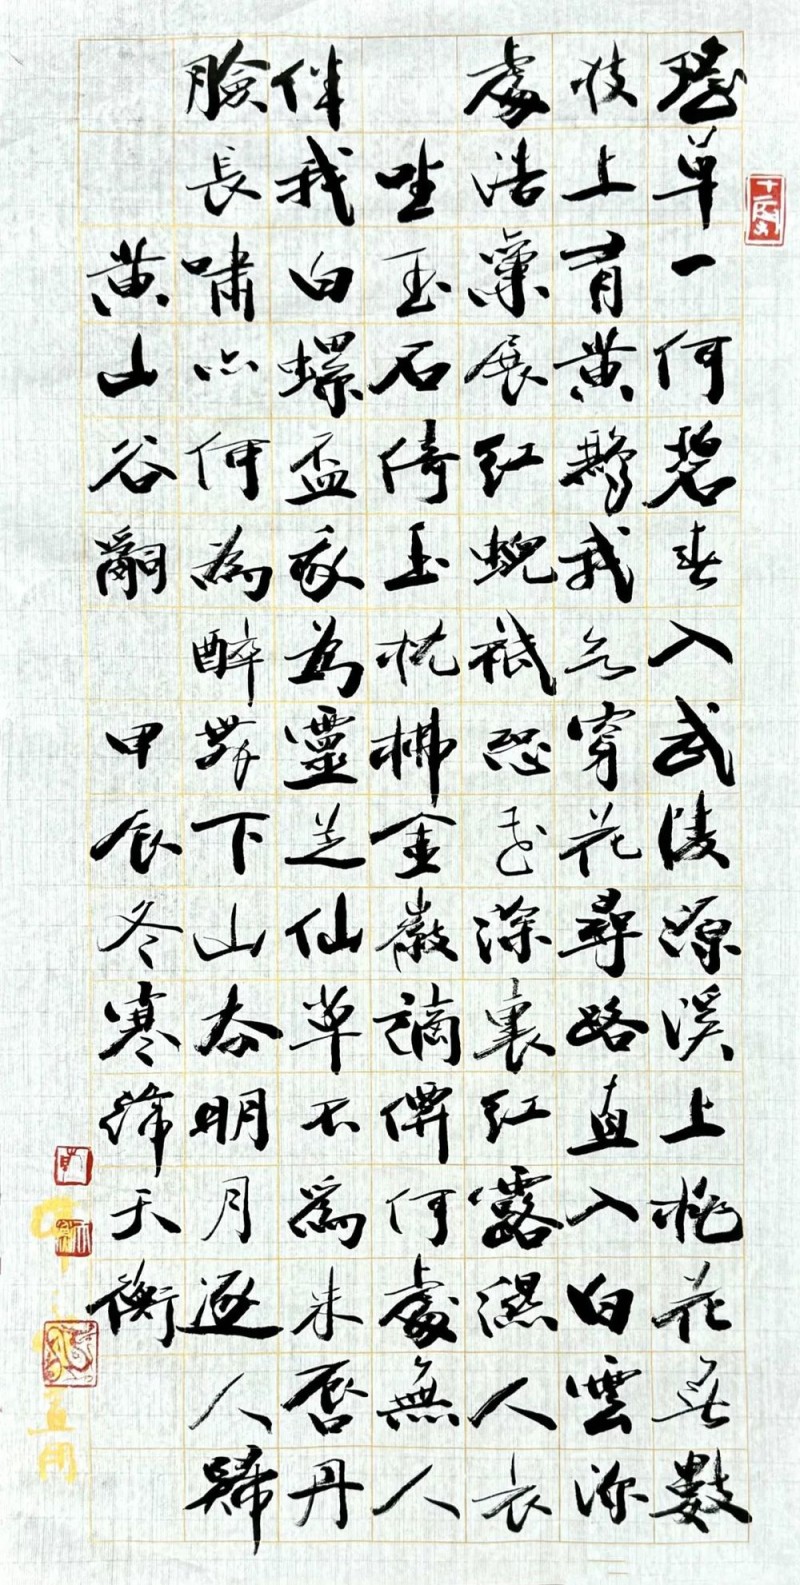 瑤草一何碧春入武陵源溪上桃花無數
枝上有黃鸝我欲穿花尋路直入白雲深
處浩氣展紅蜺祇恐花深裏紅露濕人衣
坐玉石倚玉枕拂金徽謫僊何處無人
伴我白螺盃我為靈芝仙草不為朱唇丹
臉長嘯亦何為醉舞下山去明月逐人歸
黃山谷詞 甲辰冬寒天衡